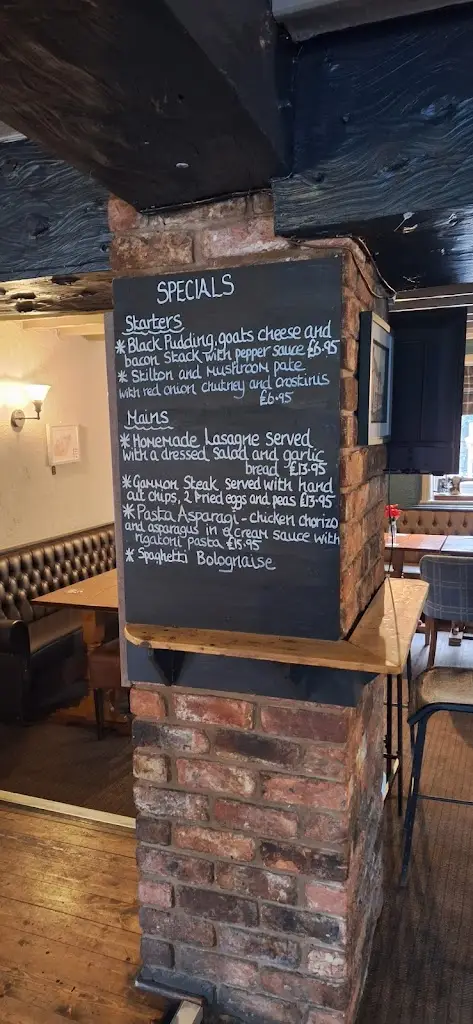 SPECIALS
Starters
* Black Pudding, goats cheese and
bacon Stack with pepper sauce £6.95
* Stilton and MUSHROOM pate
with red onion chutney and crostinis
£6.95
Mains
* Homemade Lasagne Served
with a dressed salad and garlic
bread - £13.95
* Gammon Steak served with hand
cut chips, 2 Fried eggs and peas £13.95
* Pasta Asparagi - chicken chorizo
and asparagus in a cream sauce with
rigatoni pasta £15.95
* Spaghetti Bolognaise